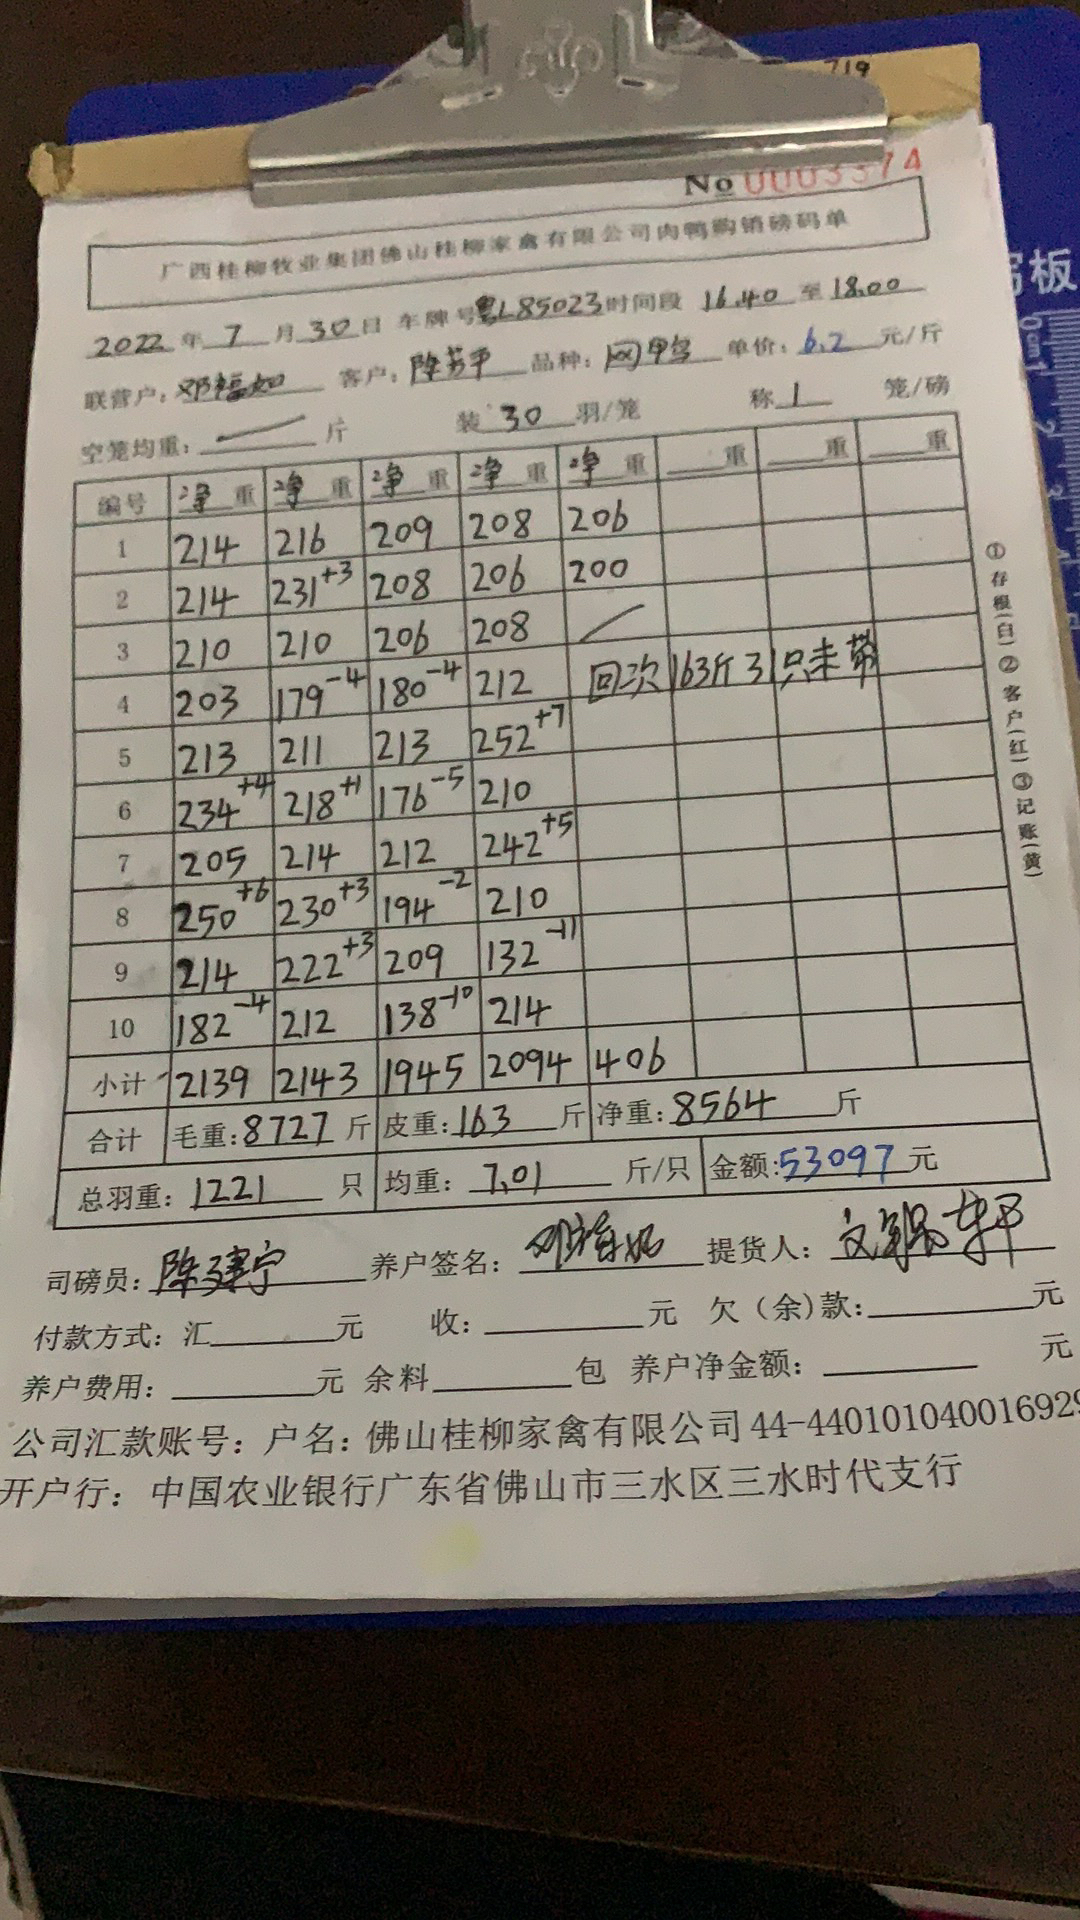 719
No 0003374
广西桂柳牧业集团佛山桂柳家禽有限公司肉鸭购销磅码单
2022 年 7 月 30 日 车牌号 粤L85023 时间段 16.40 至 18.00
联营户: 邓福如 客户: 陈芳平 品种: 网鸭 单价: 6.2 元/斤
空笼均重: 斤 装 30 羽/笼 称 1 笼/磅
编号 净重 净重 净重 净重 净重 重 重 重
1 214 216 209 208 206
2 214 231+3 208 206 200
3 210 210 206 208 /
4 203 179-4 180-4 212 回次 163斤 31只未带
5 213 211 213 252+7
6 234+4 218+1 176-5 210
7 205 214 212 242+5
8 250+6 230+3 194-2 210
9 214 222+3 209 132-11
10 182-4 212 138-10 214
小计 2139 2143 1945 2094 406
合计 毛重: 8727 斤 皮重: 163 斤 净重: 8564 斤
总羽重: 1221 只 均重: 7.01 斤/只 金额: 53097 元
司磅员: 陈建宁 养户签名: 提货人:
付款方式: 汇 元 收: 元 欠(余)款: 元
养户费用: 元 余料 包 养户净金额: 元
公司汇款账号: 户名: 佛山桂柳家禽有限公司 44-44010104001692
开户行: 中国农业银行广东省佛山市三水区三水时代支行
①存根(白)②客户(红)③记账(黄)
板